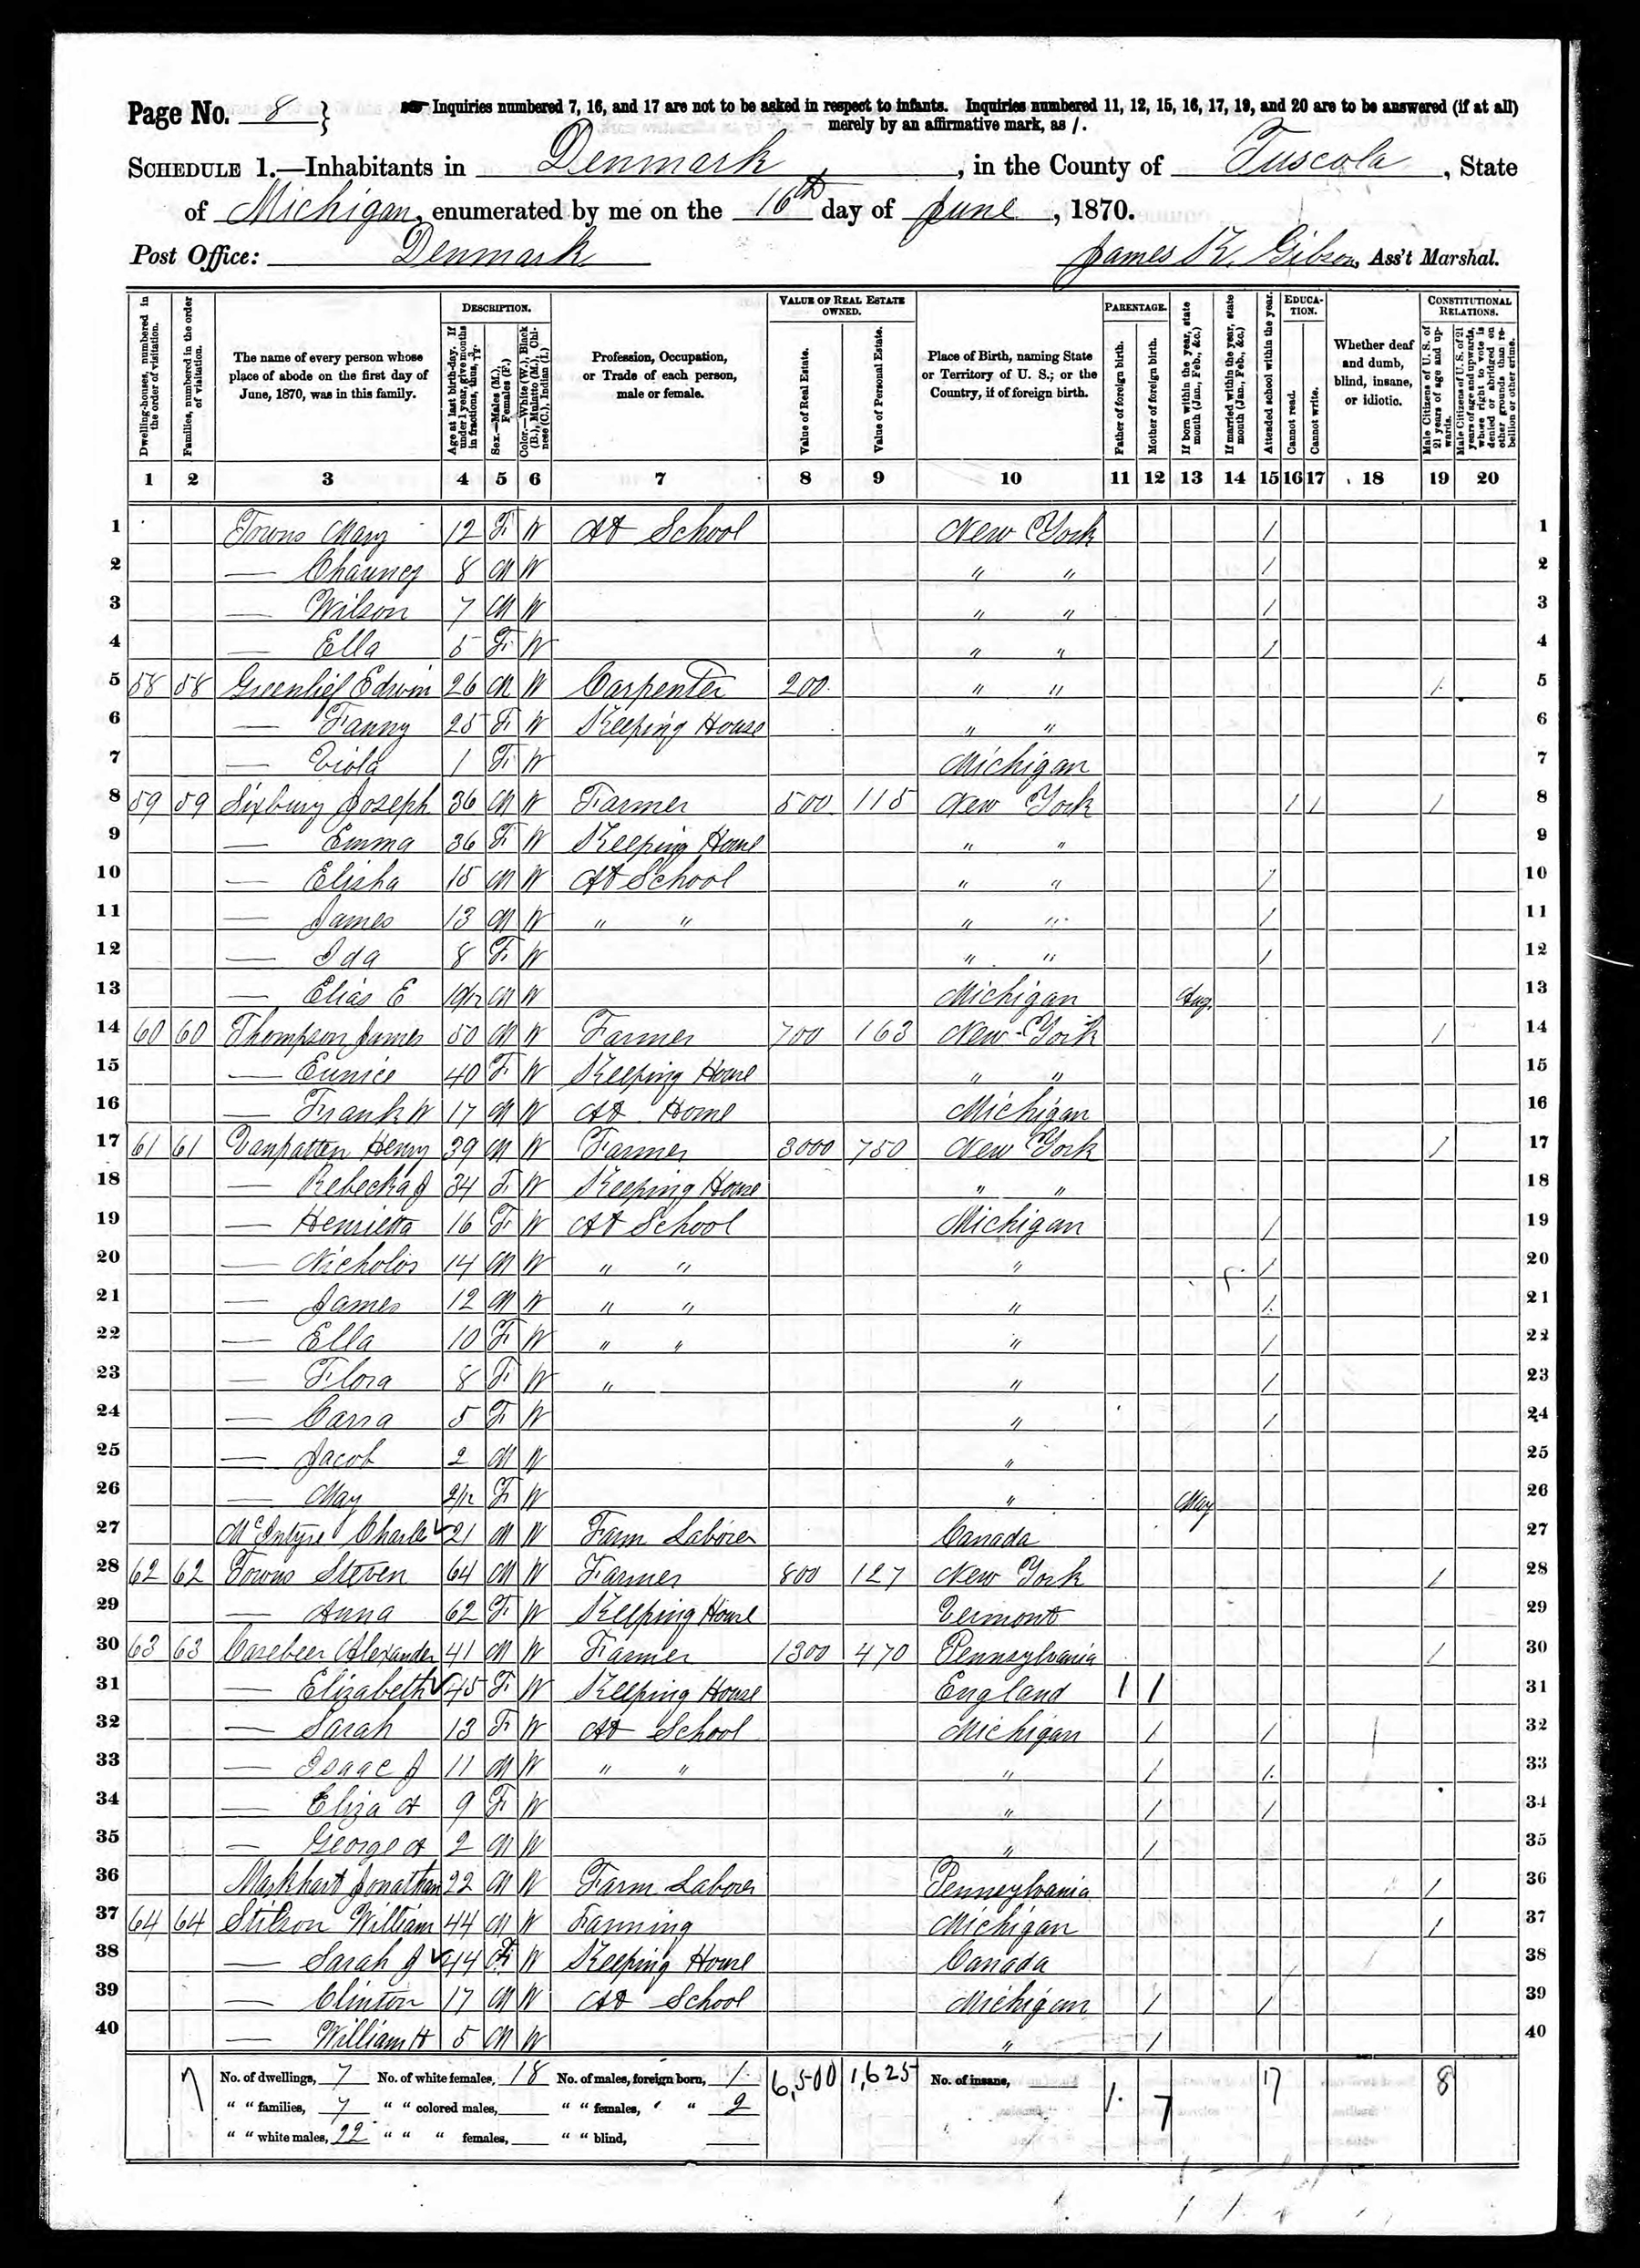 Page No. 8 } Inquiries numbered 7, 16, and 17 are not to be asked in respect to infants. Inquiries numbered 11, 12, 15, 16, 17, 19, and 20 are to be answered (if at all)
merely by an affirmative mark, as /.
SCHEDULE 1.—Inhabitants in Denmark, in the County of Tuscola, State
of Michigan, enumerated by me on the 16th day of June, 1870.
Post Office: Denmark James K. Gibson, Ass't Marshal.
Dwelling-houses, numbered in the order of visitation.
Families, numbered in the order of visitation.
The name of every person whose place of abode on the first day of June, 1870, was in this family.
DESCRIPTION.
Age at last birth-day. If under 1 year, give months in fractions, thus, 3/12.
Sex.—Males (M.), Females (F.)
Color.—White (W.), Black (B.), Mulatto (M.), Chinese (C.), Indian (I.)
Profession, Occupation, or Trade of each person, male or female.
VALUE OF REAL ESTATE OWNED.
Value of Real Estate.
Value of Personal Estate.
Place of Birth, naming State or Territory of U. S.; or the Country, if of foreign birth.
PARENTAGE.
Father of foreign birth.
Mother of foreign birth.
If born within the year, state month (Jan., Feb., &c.)
If married within the year, state month (Jan., Feb., &c.)
Attended school within the year.
EDUCATION.
Cannot read.
Cannot write.
Whether deaf and dumb, blind, insane, or idiotic.
CONSTITUTIONAL RELATIONS.
Male Citizens of U. S. of 21 years of age and upwards.
Male Citizens of U. S. of 21 years of age and upwards, whose right to vote is denied or abridged on other grounds than rebellion or other crime.
1 2 3 4 5 6 7 8 9 10 11 12 13 14 15 16 17 18 19 20
1 Towns Mary 12 F W At School New York / 1
2 — Chauncy 8 M W " " / 2
3 — Wilson 7 M W " " / 3
4 — Ella 5 F W " " / 4
5 58 58 Greenlief Edwin 26 M W Carpenter 200 " " / 5
6 — Fanny 25 F W Keeping House " " 6
7 — Viola 1 F W Michigan 7
8 59 59 Sixbury Joseph 36 M W Farmer 500 115 New York / / / 8
9 — Emma 36 F W Keeping House " " 9
10 — Elisha 15 M W At School " " / 10
11 — James 13 M W " " " " / 11
12 — Ida 8 F W " " / 12
13 — Elias E 10/12 M W Michigan Aug. 13
14 60 60 Thompson James 50 M W Farmer 700 163 New York / 14
15 — Eunice 40 F W Keeping House " " 15
16 — Frank W 17 M W At Home Michigan 16
17 61 61 Vanpatten Henry 39 M W Farmer 3000 750 New York / 17
18 — Rebecka J 34 F W Keeping House " " 18
19 — Henrietta 16 F W At School Michigan / 19
20 — Nicholos 14 M W " " " / 20
21 — James 12 M W " " " / 21
22 — Ella 10 F W " " " / 22
23 — Flora 8 F W " " / 23
24 — Carra 5 F W " / 24
25 — Jacob 2 M W " 25
26 — May 2/12 F W " May 26
27 McIntyre Charles 21 M W Farm Laborer Canada 27
28 62 62 Towns Steven 64 M W Farmer 800 127 New York / 28
29 — Anna 62 F W Keeping House Vermont 29
30 63 63 Casebeer Alexander 41 M W Farmer 1300 470 Pennsylvania / 30
31 — Elizabeth 45 F W Keeping House England / / 31
32 — Sarah 13 F W At School Michigan / / 32
33 — Isaac J 11 M W " " " / / 33
34 — Eliza A 9 F W " / / 34
35 — George A 2 M W " / 35
36 Markhart Jonathan 22 M W Farm Laborer Pennsylvania / 36
37 64 64 Stilson William 44 M W Farming Michigan / 37
38 — Sarah J 44 F W Keeping House Canada 38
39 — Clinton 17 M W At School Michigan / / 39
40 — William H 5 M W " / 40
7 No. of dwellings, 7 No. of white females, 18 No. of males, foreign born, 1 6,500 1,625 No. of insane, 1 7 17 8
" " families, 7 " " colored males, " " females, " " 2
" " white males, 22 " " " females, " " blind,